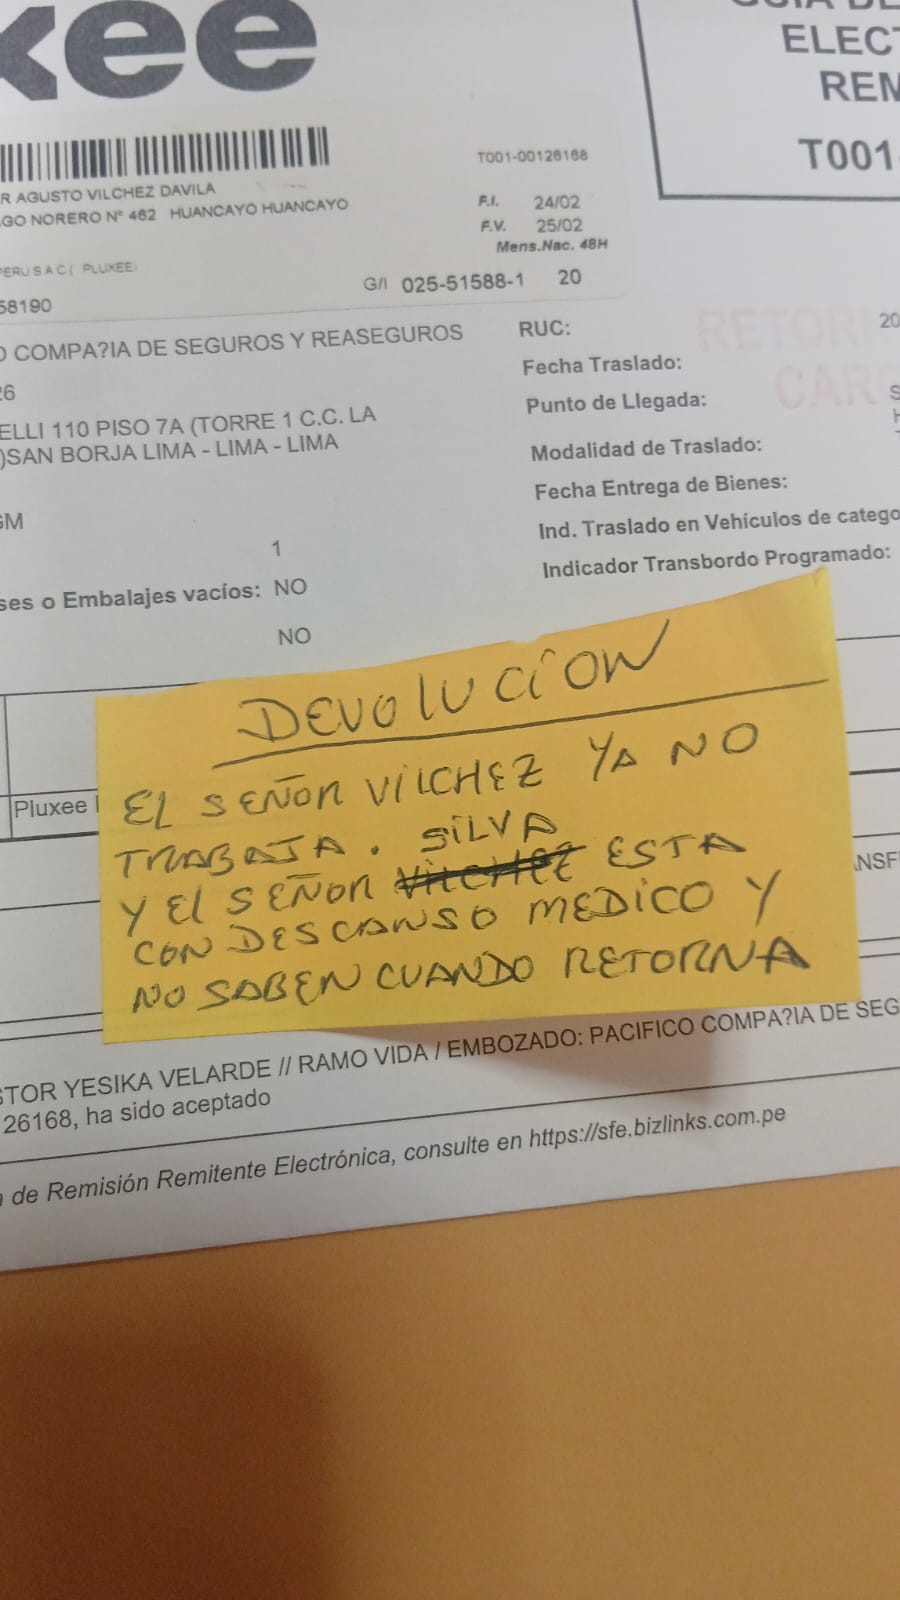 xee
ELECT
REM
T001-
T001-00126168
R AGUSTO VILCHEZ DAVILA
GO NORERO N° 462 HUANCAYO HUANCAYO
F.I. 24/02
F.V. 25/02
Mens.Nac. 48H
PERU S A C ( PLUXEE)
G/I 025-51588-1 20
58190
O COMPA?IA DE SEGUROS Y REASEGUROS
26
ELLI 110 PISO 7A (TORRE 1 C.C. LA
)SAN BORJA LIMA - LIMA - LIMA
GM
1
ses o Embalajes vacíos: NO
NO
RUC: 20
Fecha Traslado:
Punto de Llegada:
Modalidad de Traslado:
Fecha Entrega de Bienes:
Ind. Traslado en Vehículos de catego
Indicador Transbordo Programado:
RETOR
CARG
Pluxee
DEVOLUCIÓN
EL SEÑOR VILCHEZ YA NO
TRABAJA. SILVA
Y EL SEÑOR VILCHEZ ESTA
CON DESCANSO MEDICO Y
NO SABEN CUANDO RETORNA
ANSF
STOR YESIKA VELARDE // RAMO VIDA / EMBOZADO: PACIFICO COMPA?IA DE SEG
26168, ha sido aceptado
a de Remisión Remitente Electrónica, consulte en https://sfe.bizlinks.com.pe